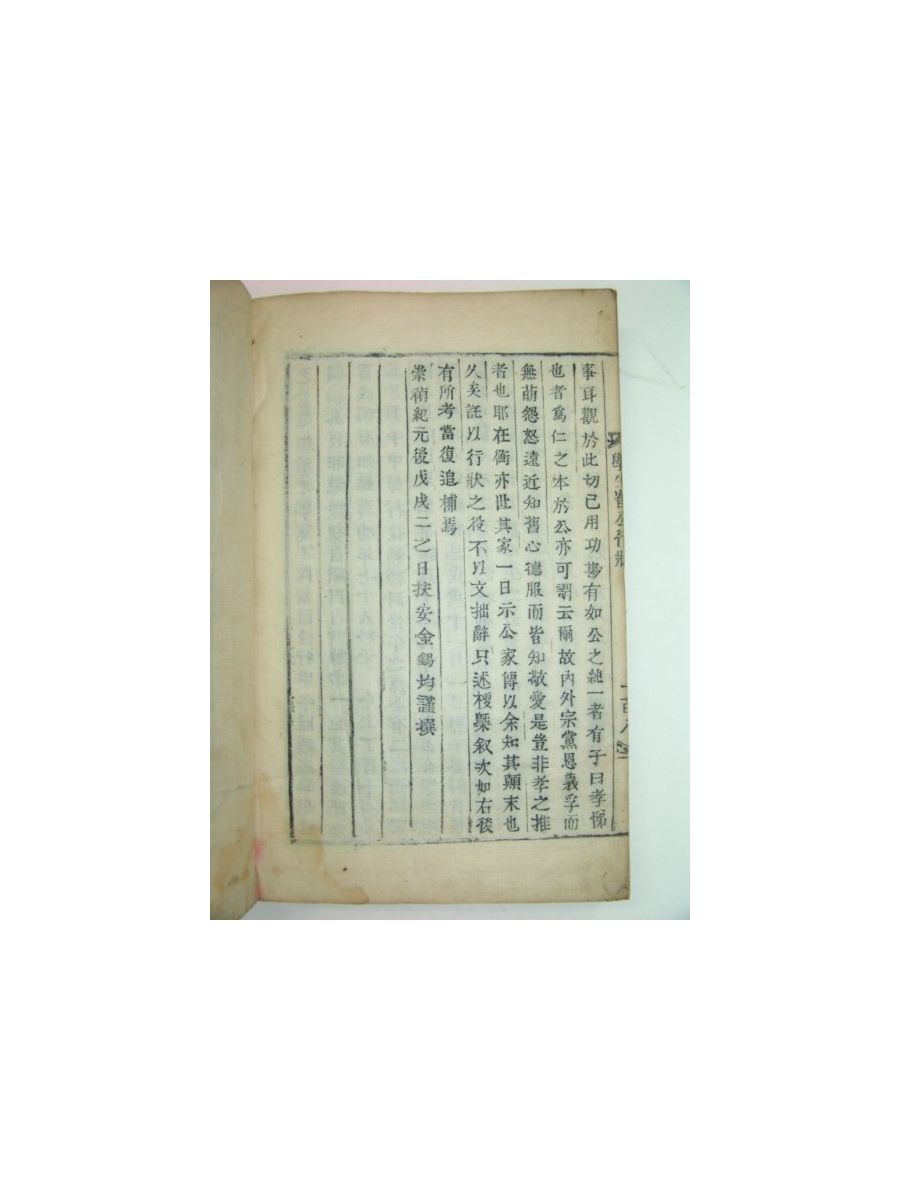 事耳觀於此切己用功夢有如公之純一者有子曰孝悌
也者爲仁之本於公亦可謂云爾故內外宗黨恩義孚而
無萌怨怒遠近知舊心德服而皆知敬愛是豈非孝之推
者也耶在衡亦世其家一日示公家傳以余知其顚末也
久矣託以行狀之役不以文拙辭只述梗槩叙次如右後
有所考當復追補焉
崇禎紀元後戊戌二之日扶安金錫均謹撰
學生 公行狀
一百八